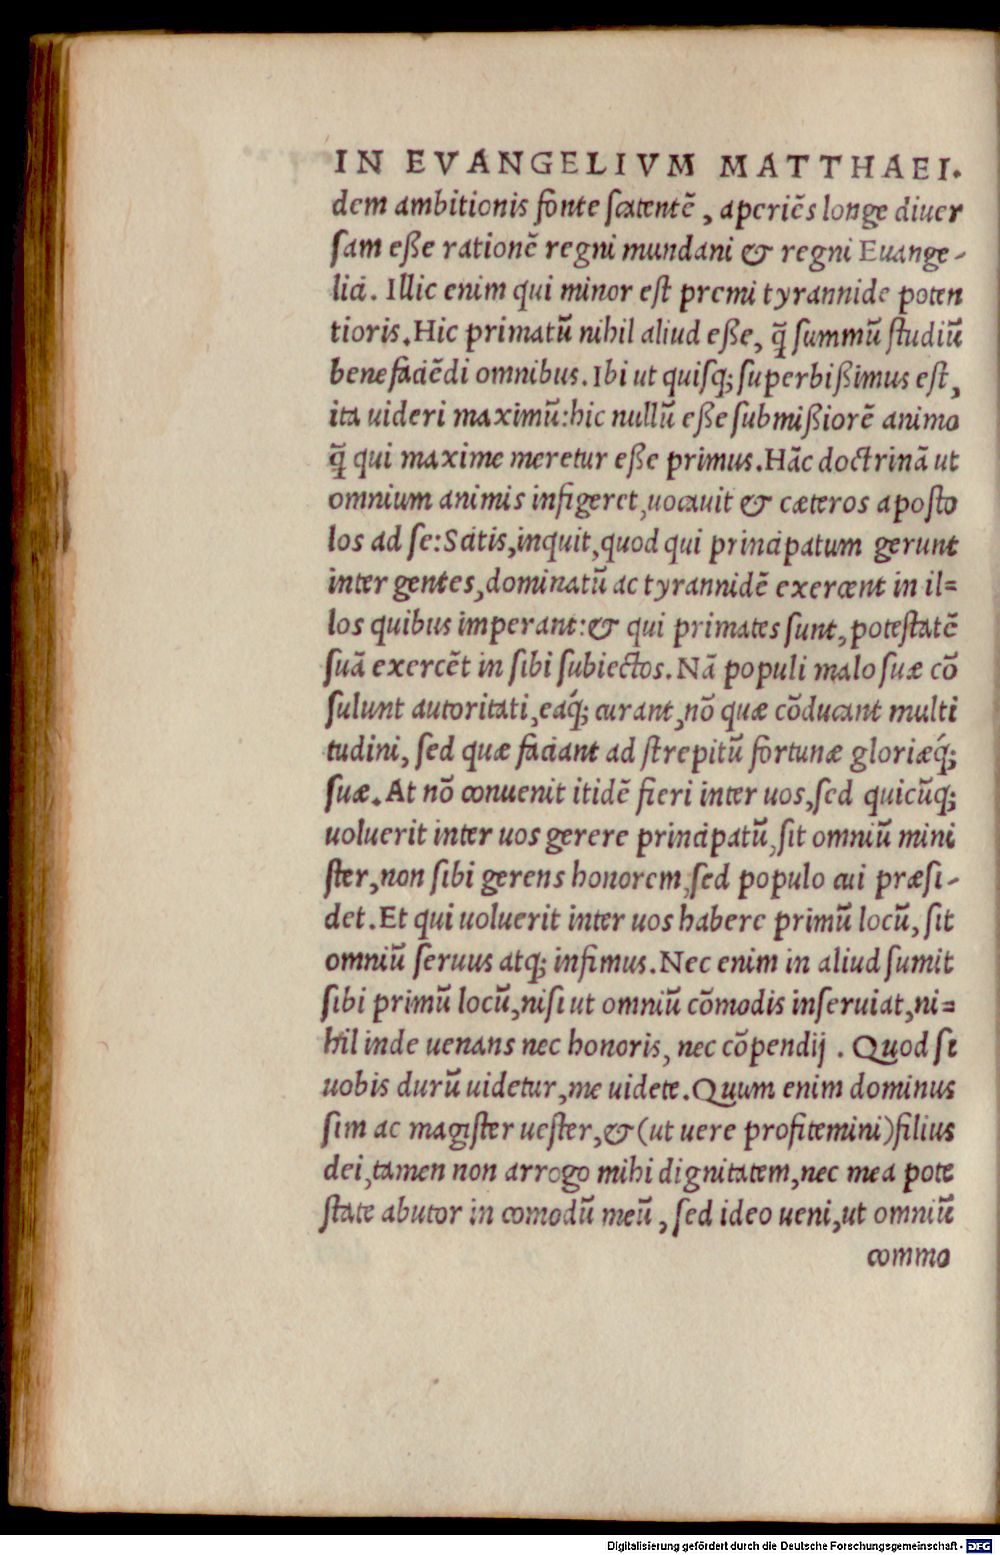 IN EVANGELIVM MATTHAEI.
dem ambitionis fonte ſcatentẽ, aperiẽs longe diuer
ſam eſſe rationẽ regni mundani & regni Euange-
lici. Illic enim qui minor eſt premi tyrannide poten
tioris. Hic primatũ nihil aliud eſſe, q̃ ſummũ ſtudiũ
benefaciẽdi omnibus. Ibi ut quiſq; ſuperbiſſimus eſt,
ita uideri maximũ: hic nullũ eſſe ſubmiſſiorẽ animo
q̃ qui maxime meretur eſſe primus. Hãc doctrinã ut
omnium animis infigeret, uocauit & cæteros apoſto
los ad ſe: Scitis, inquit, quod qui principatum gerunt
inter gentes, dominatũ ac tyrannidẽ exercent in il=
los quibus imperant: & qui primates ſunt, poteſtatẽ
ſuã exercẽt in ſibi ſubiectos. Nã populi malo ſuæ cõ
ſulunt autoritati, eaq́; curant, nõ quæ cõducant multi
tudini, ſed quæ faciant ad ſtrepitũ fortunæ gloriæq́;
ſuæ. At nõ conuenit itidẽ fieri inter uos, ſed quicũq;
uoluerit inter uos gerere principatũ, ſit omniũ mini
ſter, non ſibi gerens honorem, ſed populo cui præſi-
det. Et qui uoluerit inter uos habere primũ locũ, ſit
omniũ ſeruus atq; infimus. Nec enim in aliud ſumit
ſibi primũ locũ, niſi ut omniũ cõmodis inſeruiat, ni=
hil inde uenans nec honoris, nec cõpendij. Quod ſi
uobis durũ uidetur, me uidete. Quum enim dominus
ſim ac magiſter ueſter, & (ut uere profitemini) filius
dei, tamen non arrogo mihi dignitatem, nec mea pote
ſtate abutor in comodũ meũ, ſed ideo ueni, ut omniũ
commo
Digitalisierung gefördert durch die Deutsche Forschungsgemeinschaft - DFG